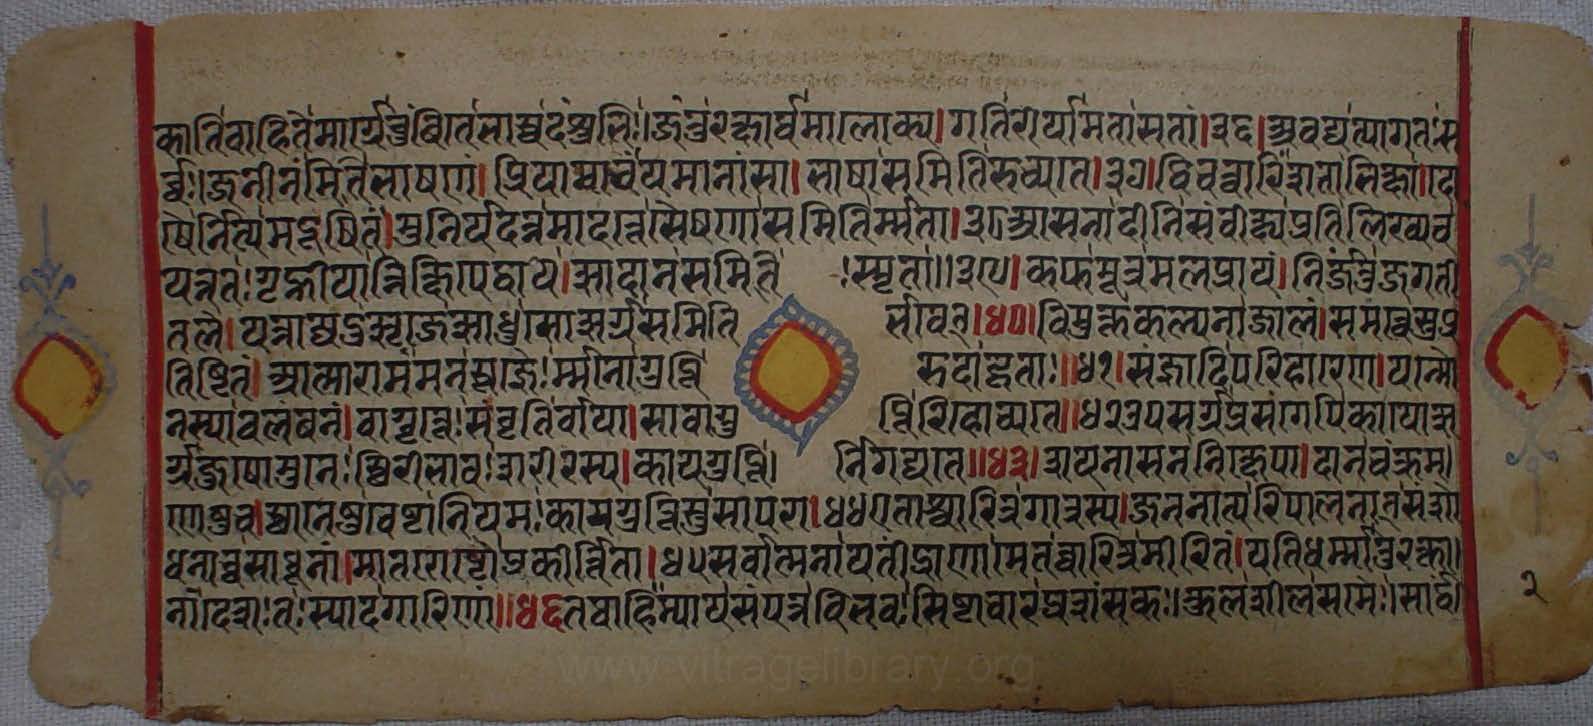 कातिवाहिते मार्गे चुंबिते भास्वदंशुभिः। जंतुरक्षार्थमालोक्य। गतिरीर्या मता सतां। ३६। अवद्यत्यागतः स
र्व्वः। जनीनं मितभाषणं। प्रिया वाचंयमानां सा। भाषासमितिरुच्यते। ३७। द्विचत्वारिंशता भिक्षा। दो
षैर्नित्यमदूषितं। मुनिर्यदन्नमादत्ते। सैषणासमितिर्म्मता। ३८ आसनादीनि संवीक्ष्य प्रतिलिख्य च
यत्नतः। गृह्णीयान्निक्षिपेद्वा यं। आदानसमितिः स्मृता।। ३९। कफमूत्रमलप्रायं। निर्जंतुजगती
तले। यत्नाद्यदुत्सृजेत्साधुः। सोत्सर्गसमितिर्भवेत्। ४०। विमुक्तकल्पनाजालं। समत्वे सुप्र
तिष्टितं। आत्मारामं मनस्तज्ज्ञैः। र्म्मनोगुप्तिरुदाहृता।।। ४१। संज्ञादिपरिहारेण। यन्मौ
नस्यावलंबनं। वाग्वृत्तेः संवृतिर्वा या। सा वाग्गुप्तिरिहोच्यते।। ४२ उपसर्गप्रसंगेपि का। योत्स
र्गजुषो मुनेः। स्थिरीभावः शरीरस्य। कायगुप्तिर्निगद्यते।। ४३। शयनासननिक्षेपा। दानचंक्रम
णेषु च। स्थानेषु चेष्टानियमः। कायगुप्तिस्तु सापरा। ४४ एताश्चारित्रगात्रस्य। जननात्परिपालनात् संशो
धनाच्च साधूनां। मातरोष्टौ प्रकीर्त्तिता। ४५ सर्वात्मना यतींद्राणामेतच्चारित्रमीरितं। यतिधर्म्मानुरक्ता।
नां देशतः स्यादगारिणां।। ४६ तथाहि न्यायसंपन्नविभवः। शिष्टाचारप्रशंसकः। कुलशीलसमैः। सार्द्धं
२
www.vitragelibrary.org